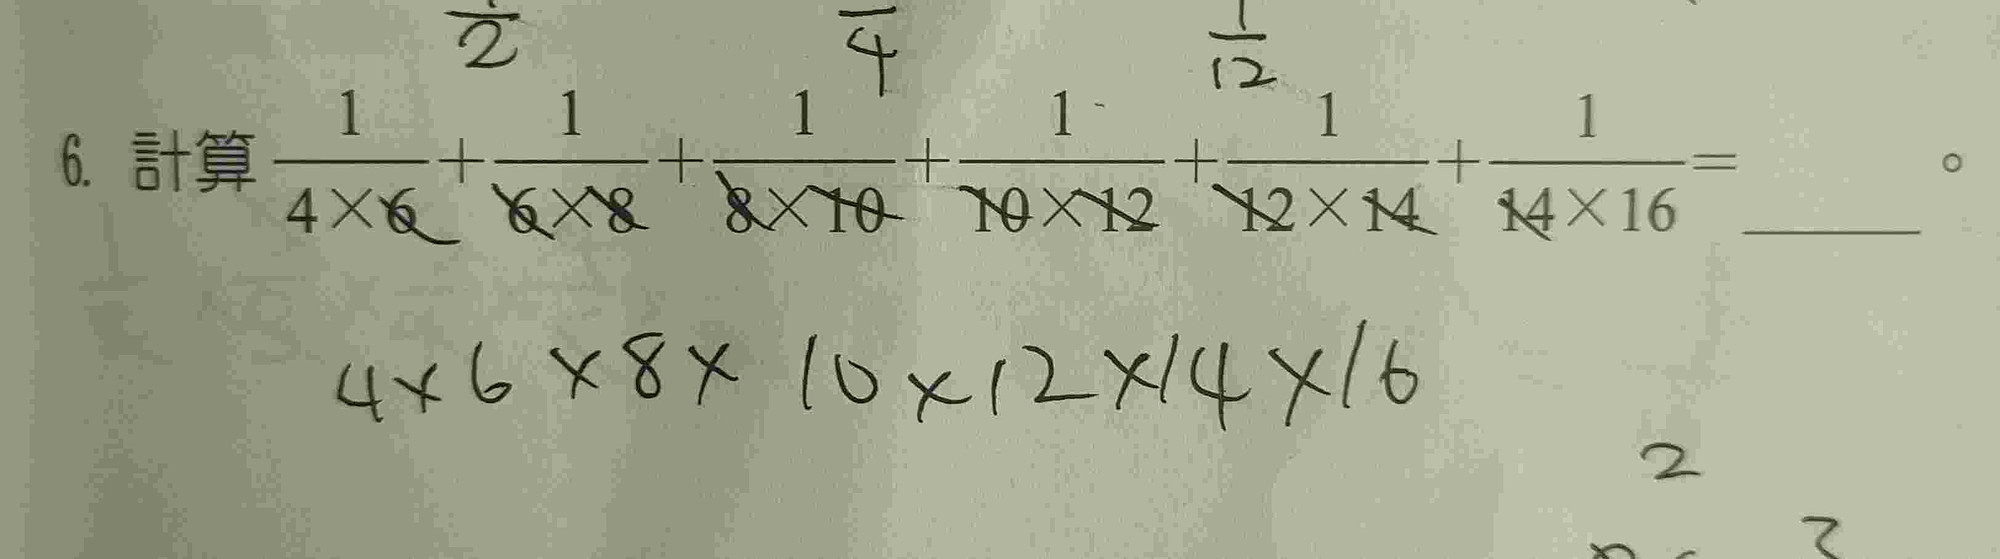 1/2 1/4 1/12
6. 計算 1/(4×6) + 1/(6×8) + 1/(8×10) + 1/(10×12) + 1/(12×14) + 1/(14×16) = ______ 。
4×6×8×10×12×14×16
2
3